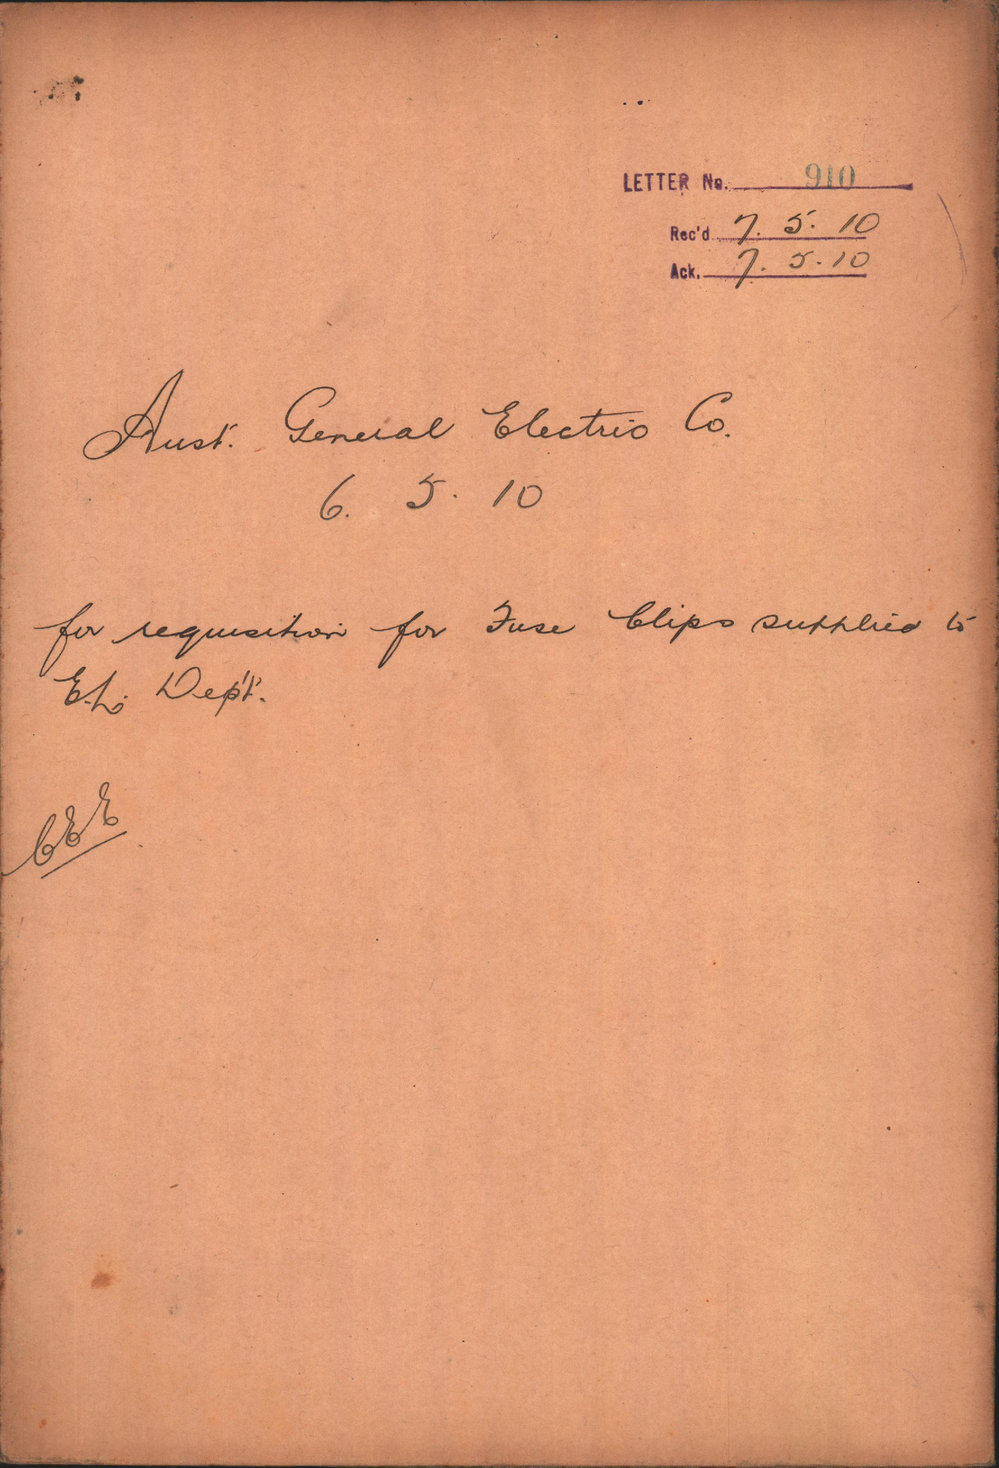 LETTER No. 910
Rec'd 7. 5. 10
Ack. 7. 5. 10
Aust. General Electric Co.
6. 5. 10
for requisition for Fuse Clips supplied to
E.L. Dep't.
CEE